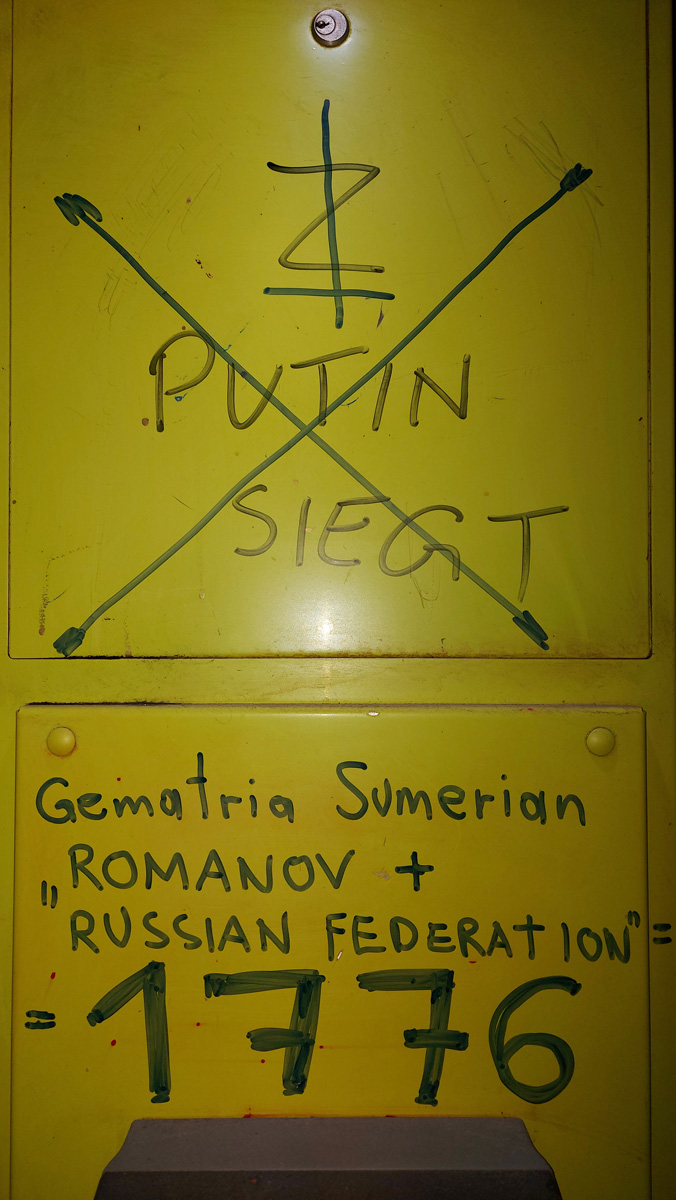 Z
PUTIN
SIEGT
Gematria Sumerian
„ROMANOV +
RUSSIAN FEDERATION" =
= 1776